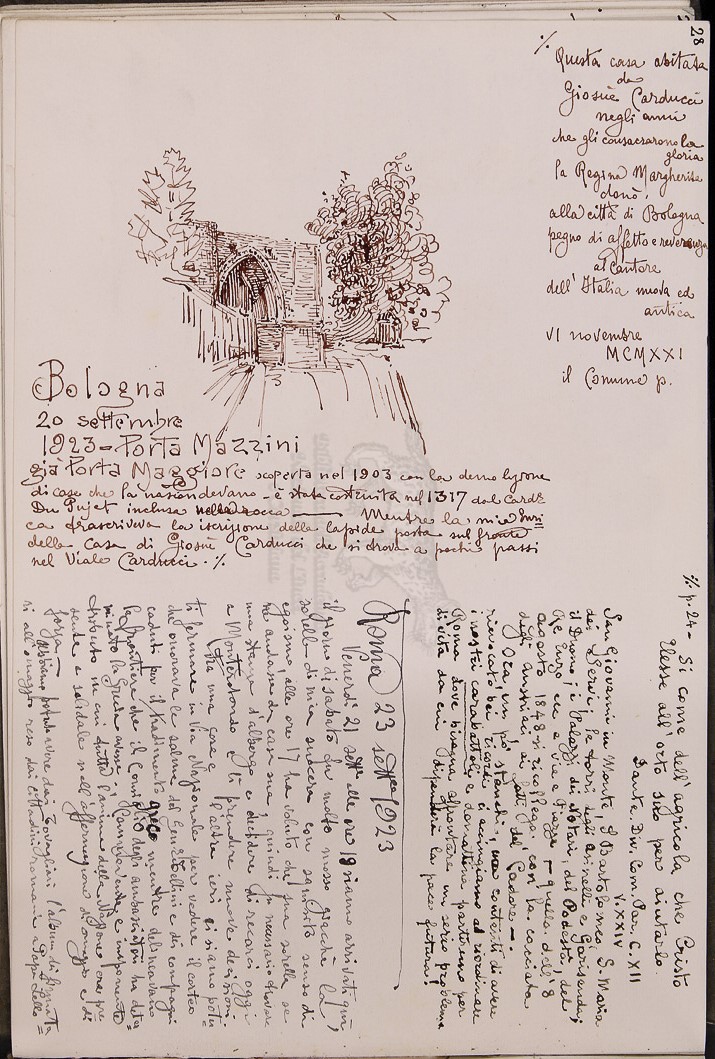 28
·/.
Questa casa abitata
da
Giosuè Carducci
negli anni
che gli consacrarono la
gloria
la Regina Margherita
donò
alla città di Bologna
pegno di affetto e reverenza
al Cantore
dell'Italia nuova ed
antica
VI novembre
MCMXXI
il Comune p.
Bologna
20 settembre
1923 = Porta Mazzini
già Porta Maggiore scoperta nel 1903 con la demolizione
di case che la nascondevano - è stata costruita nel 1317 dal Card.
Du Pujet inclusa nella rocca — Mentre la mia
ca trascriveva la iscrizione della lapide posta sul fronte
della Casa di Giosuè Carducci che si trova a pochi passi
nel Viale Carducci. ·/.
·/. p. 24 - Sì come dell'agricola che Cristo
Elesse all'orto suo per aiutarlo.
Dante. Div. Com. Par. C. XII
V. XXIV
San Giovanni in Monte, S. Bartolomeo, S. Maria
dei Servi, le torri degli Asinelli e Garisenda,
il Duomo, i Palazzi di Notari, del Podestà, del
Re Enzo ecc e vie e piazze - quella d. dell'8
agosto 1848 si ricollega con la cacciata
degli Austriaci ai fatti del Cadore -.
Ora, un po' stanchi, ma contenti di avere
rievocato bei ricordi ci accingiamo ad riordinare
i nostri carabattoli e domattina partiremo per
Roma dove bisogna affrontare un serio problema
di vita da cui dipenderà la pace futura!
Roma 23 sett. 1923
Venerdì 21 sett. alle ore 19 siamo arrivati qui,
il giorno di sabato fu molto mosso giacchè la
sorella di mia suocera con squisito senso di
egoismo alle ore 17 ha voluto che sua sorella se
ne andasse da casa sua; quindi fu necessario trovare
una stanza d'albergo e decidere di recarsi oggi
a Monterotondo e lì prendere nuove decisioni.
Fra una cosa e l'altra ieri ci siamo potu
ti fermare in Via Nazionale per vedere il corteo
che onorava le salme del Gen. Tellini e di compagni
caduti per il tradimento greco mentre delineavano
le frontiere che il Consiglio degli ambasciatori ha deter
minato la Grecia avesse; fu imponente
tributo in cui tutta l'anima della Nazione era pre
sente e solidale nell'affermazione di omaggio e di
forza —
abbiamo potuto avere dai Tovagliari l'album di
si all'omaggio reso dai cittadini romani a dopo delle =